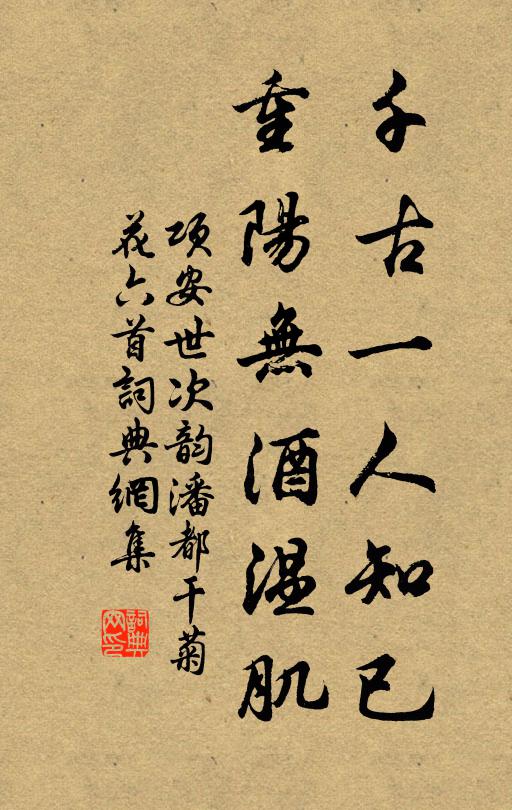 千古一人知已
重陽無酒温肌
項安世次韵潘都干菊
花六首詞典網集
詞典網印